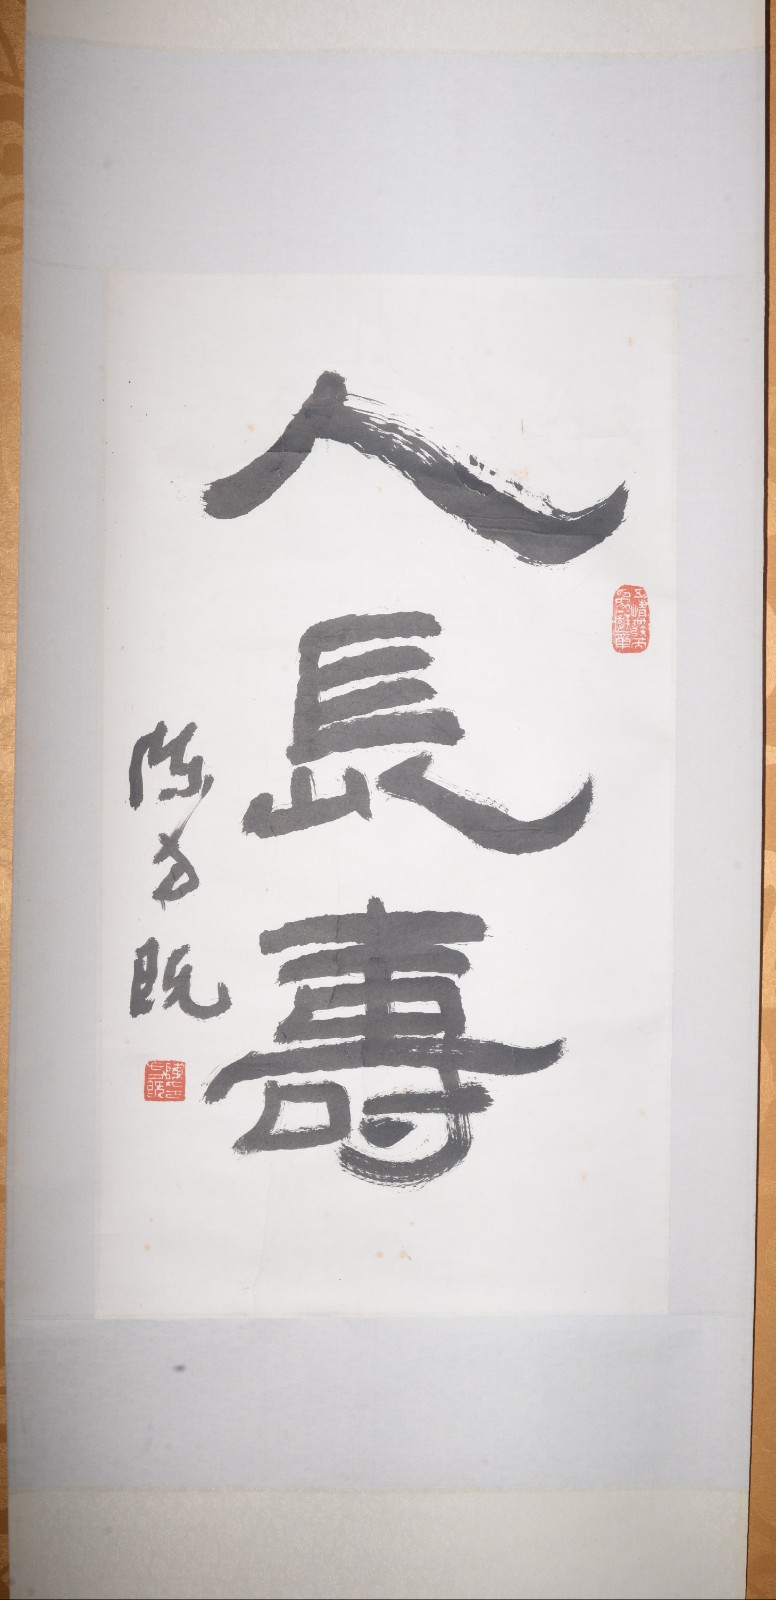 人長壽
陈方既